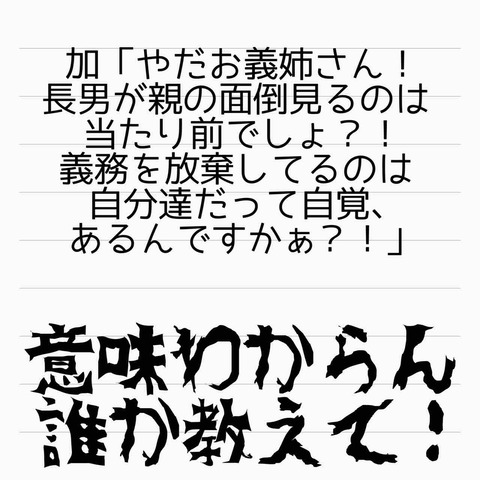 加「やだお義姉さん！
長男が親の面倒見るのは
当たり前でしょ？！
義務を放棄してるのは
自分達だって自覚、
あるんですかぁ？！」
意味わからん
誰か教えて！